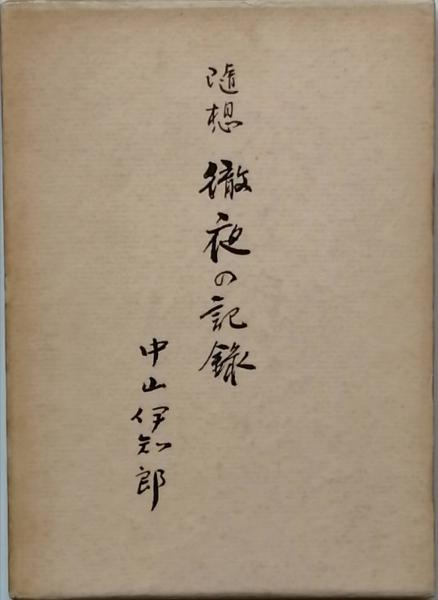 随想 徹夜の記録
中山伊知郎